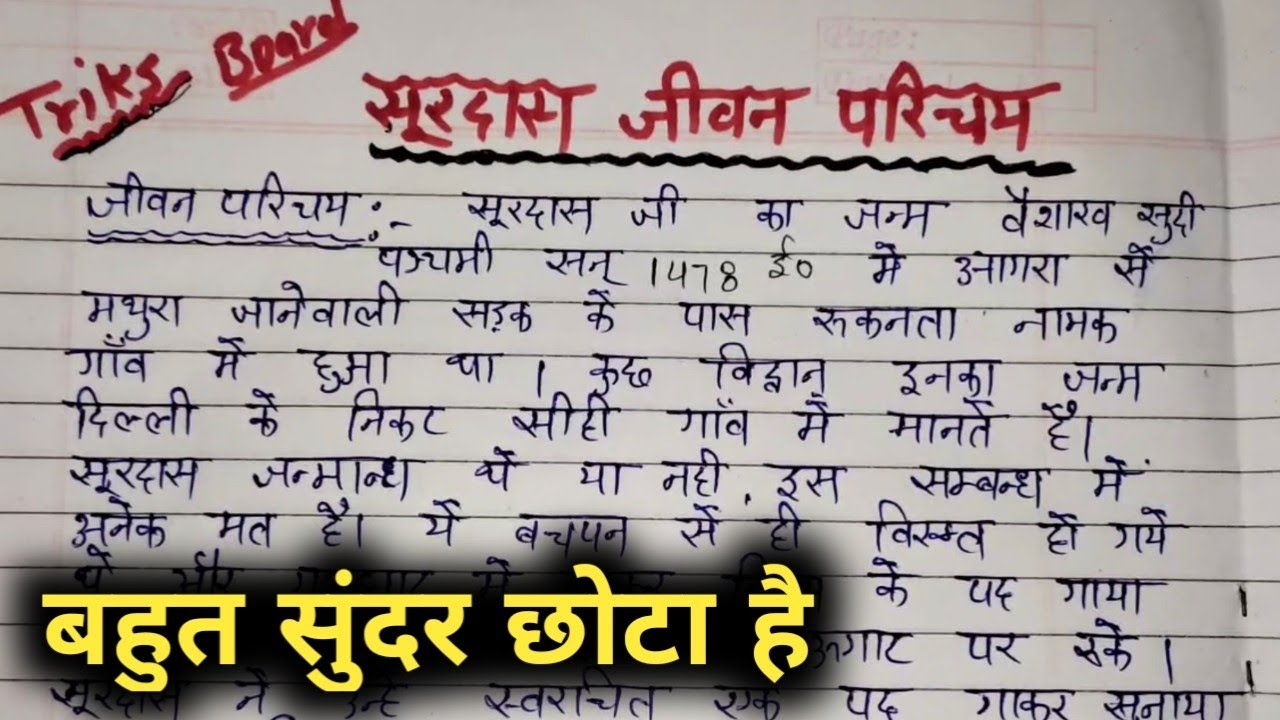 Triks Board
सूरदास जीवन परिचय
जीवन परिचय :- सूरदास जी का जन्म वैशाख सुदी
पञ्चमी सन् 1478 ई० में आगरा से
मथुरा जानेवाली सड़क के पास रुकनता नामक
गाँव में हुआ था । कुछ विद्वान् इनका जन्म
दिल्ली के निकट सीही गाँव में मानते हैं।
सूरदास जन्मान्ध थे या नहीं, इस सम्बन्ध में
अनेक मत है। ये बचपन से ही विरक्त हो गये
थे और में के पद गाया
बहुत सुंदर छोटा है
पर रुके ।
सूरदास ने उन्हें स्वरचित एक पद गाकर सुनाया